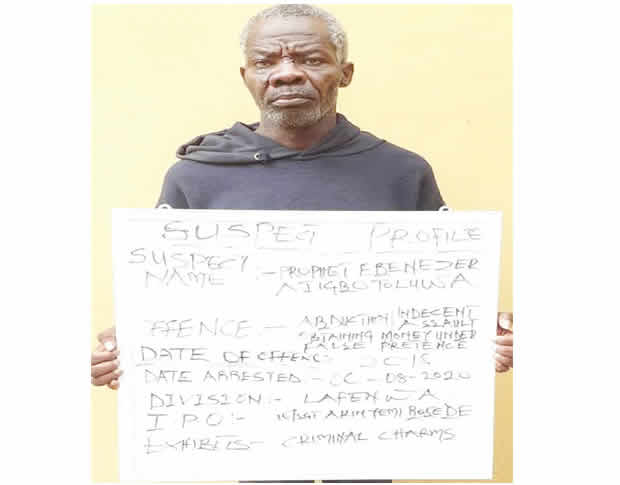 SUSPECT PROFILE
SUSPECT NAME :- PROPHET EBENEZER
AJIGBOTOLUWA
FFENCE :- INDECENT
ASSAULT
OBTAINING MONEY UNDER
FALSE PRETENCE
DATE OF OFFENCE:
DATE ARRESTED - -08-2020
DIVISION :- LAFENWA
I P O :- AKINYEMI BOSEDE
EXHIBITS- CRIMINAL CHARMS